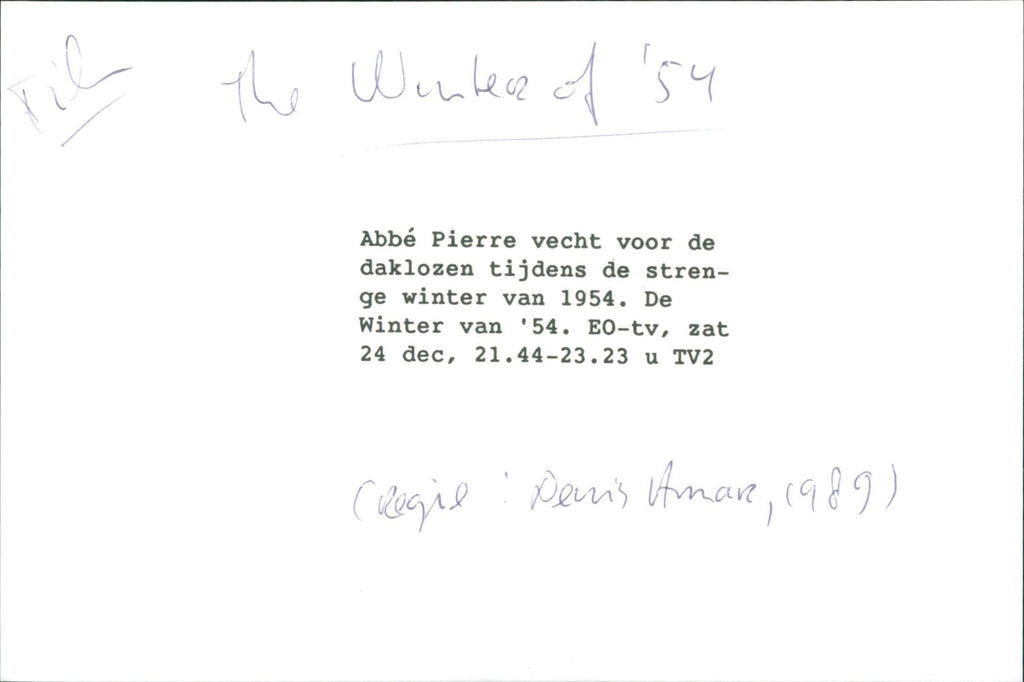 Film The Winter of '54
Abbé Pierre vecht voor de
daklozen tijdens de stren-
ge winter van 1954. De
Winter van '54. EO-tv, zat
24 dec, 21.44-23.23 u TV2
(Regie : Denis Amar, 1989)